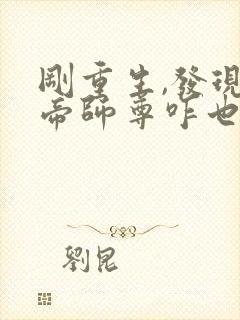 剛重生,發現
帝師尊咋也
劉昆